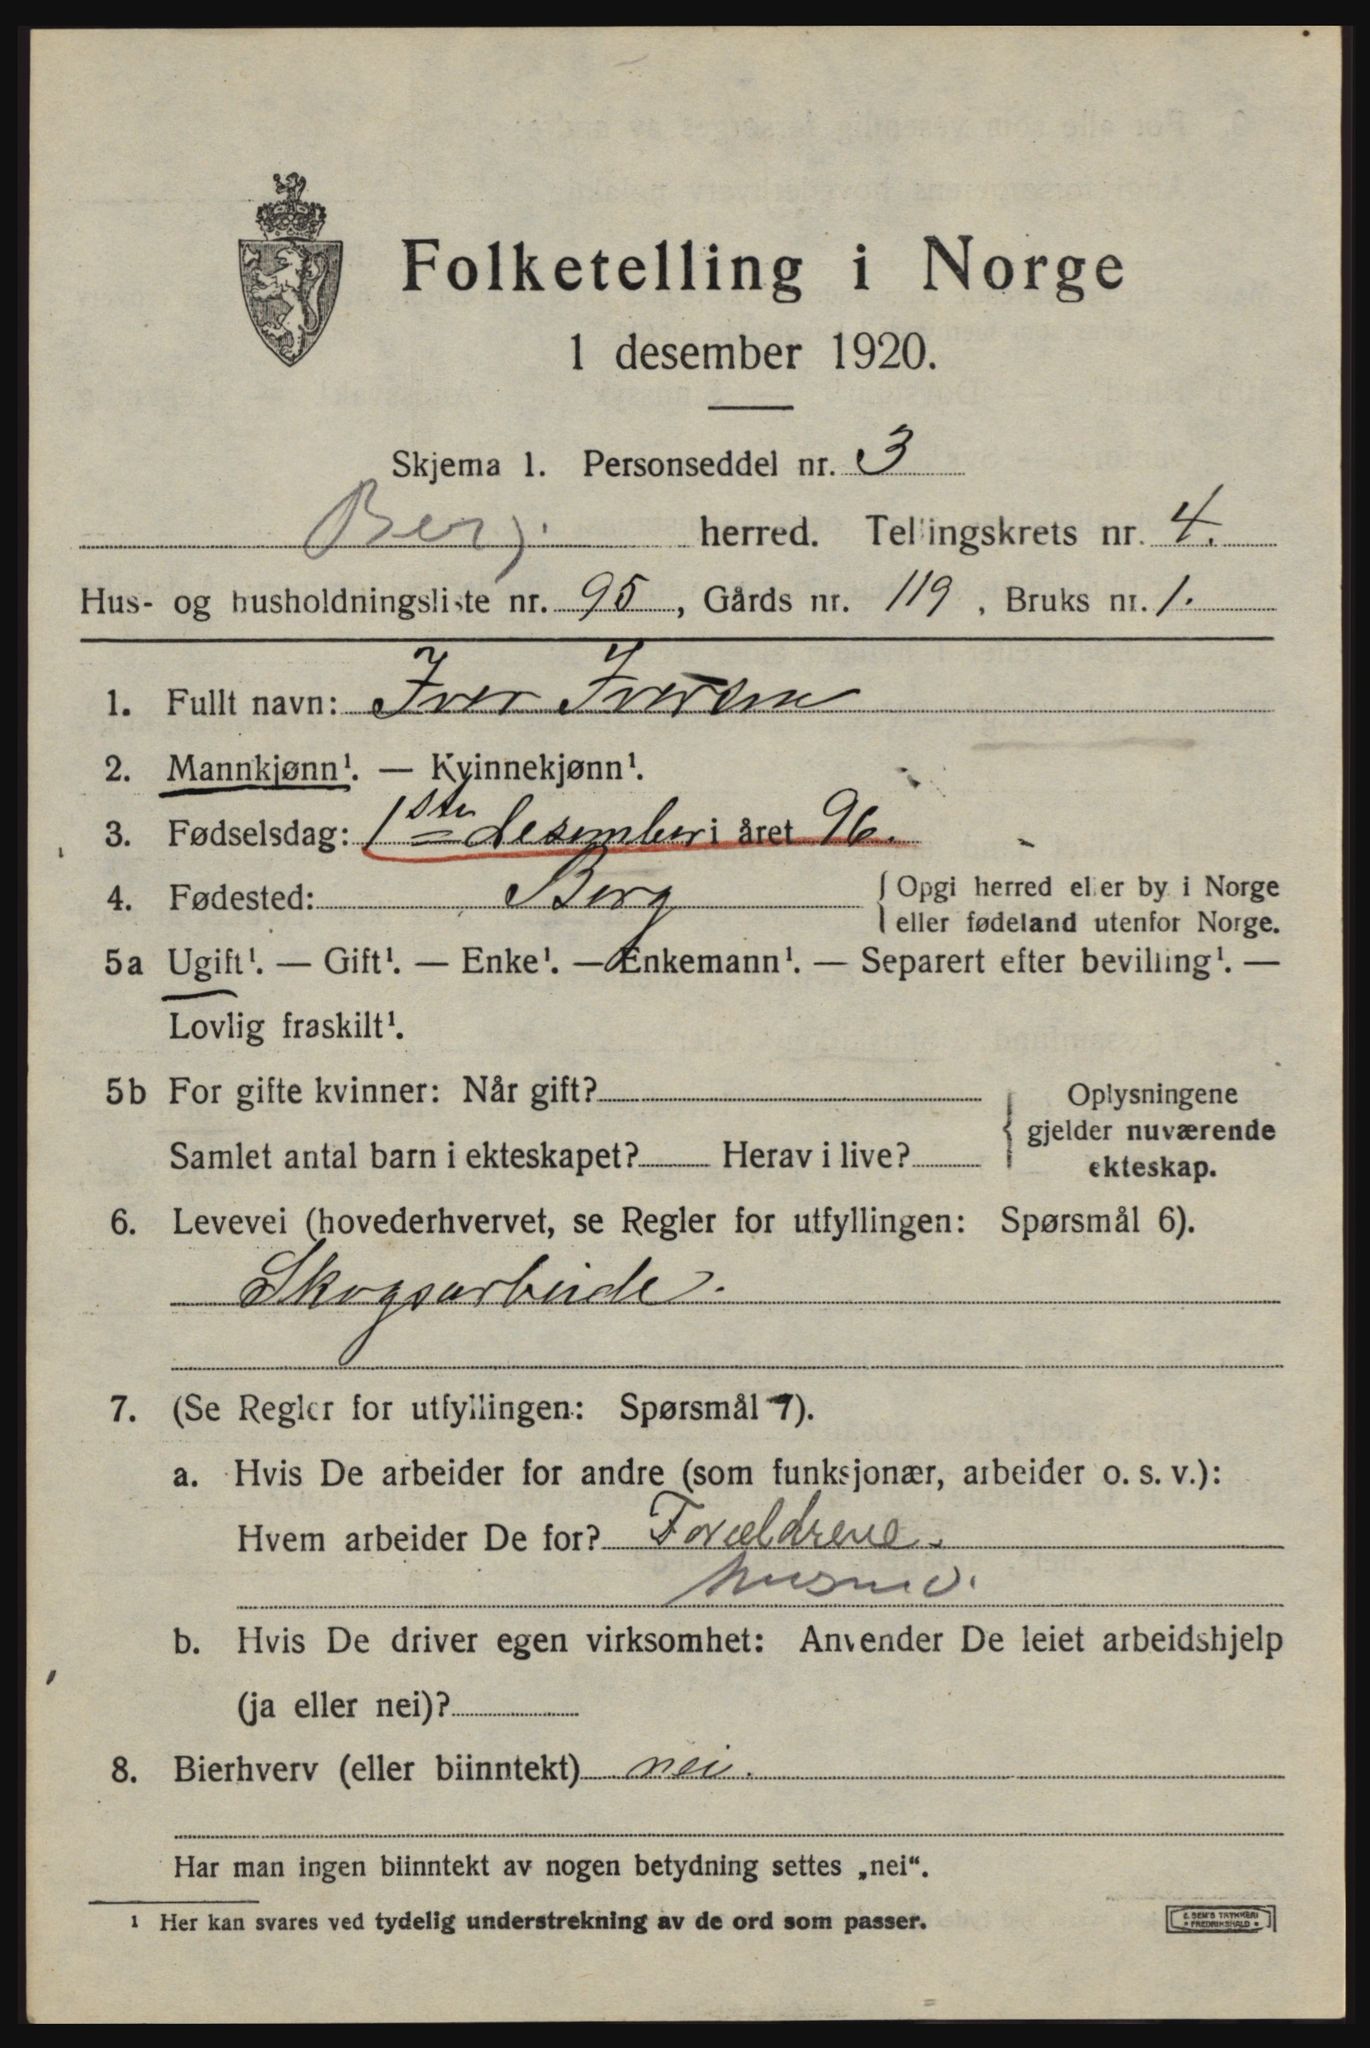 Folketelling i Norge
1 desember 1920.
Skjema 1. Personseddel nr. 3
Berg. herred. Tellingskrets nr. 4.
Hus- og husholdningsliste nr. 95, Gårds nr. 119, Bruks nr. 1.
1. Fullt navn: Iver Iversen
2. Mannkjønn¹. — Kvinnekjønn¹.
3. Fødselsdag: 1ste desember i året 96.
4. Fødested: Berg { Opgi herred eller by i Norge
eller fødeland utenfor Norge.
5a Ugift¹. — Gift¹. — Enke¹. — Enkemann¹. — Separert efter bevilling¹. —
Lovlig fraskilt¹.
5b For gifte kvinner: Når gift?
Samlet antal barn i ekteskapet? Herav i live?
{ Oplysningene
gjelder nuværende
ekteskap.
6. Levevei (hovederhvervet, se Regler for utfyllingen: Spørsmål 6).
Skogsarbeide.
7. (Se Regler for utfyllingen: Spørsmål 7).
a. Hvis De arbeider for andre (som funksjonær, arbeider o. s. v.):
Hvem arbeider De for? Forældrene.
b. Hvis De driver egen virksomhet: Anvender De leiet arbeidshjelp
(ja eller nei)?
8. Bierhverv (eller biinntekt) nei.
Har man ingen biinntekt av nogen betydning settes „nei“.
¹ Her kan svares ved tydelig understrekning av de ord som passer.
E. SEM'S TRYKKERI
FREDRIKSHALD